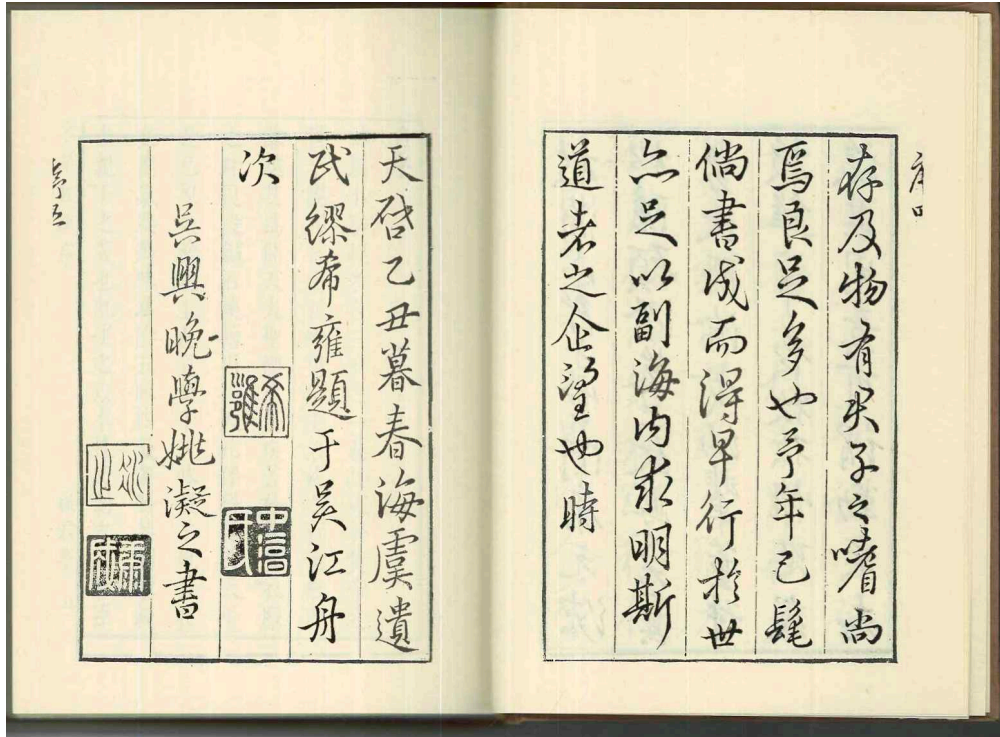 存及物有夫子之嗜尚
焉良足多也予年已髦
倘書成而得早行於世
亦足以副海內求明斯
道者之企望也時
天啓乙丑暮春海虞遺
民繆希雍題于吳江舟
次
希雍
吳興晚學姚凝之書